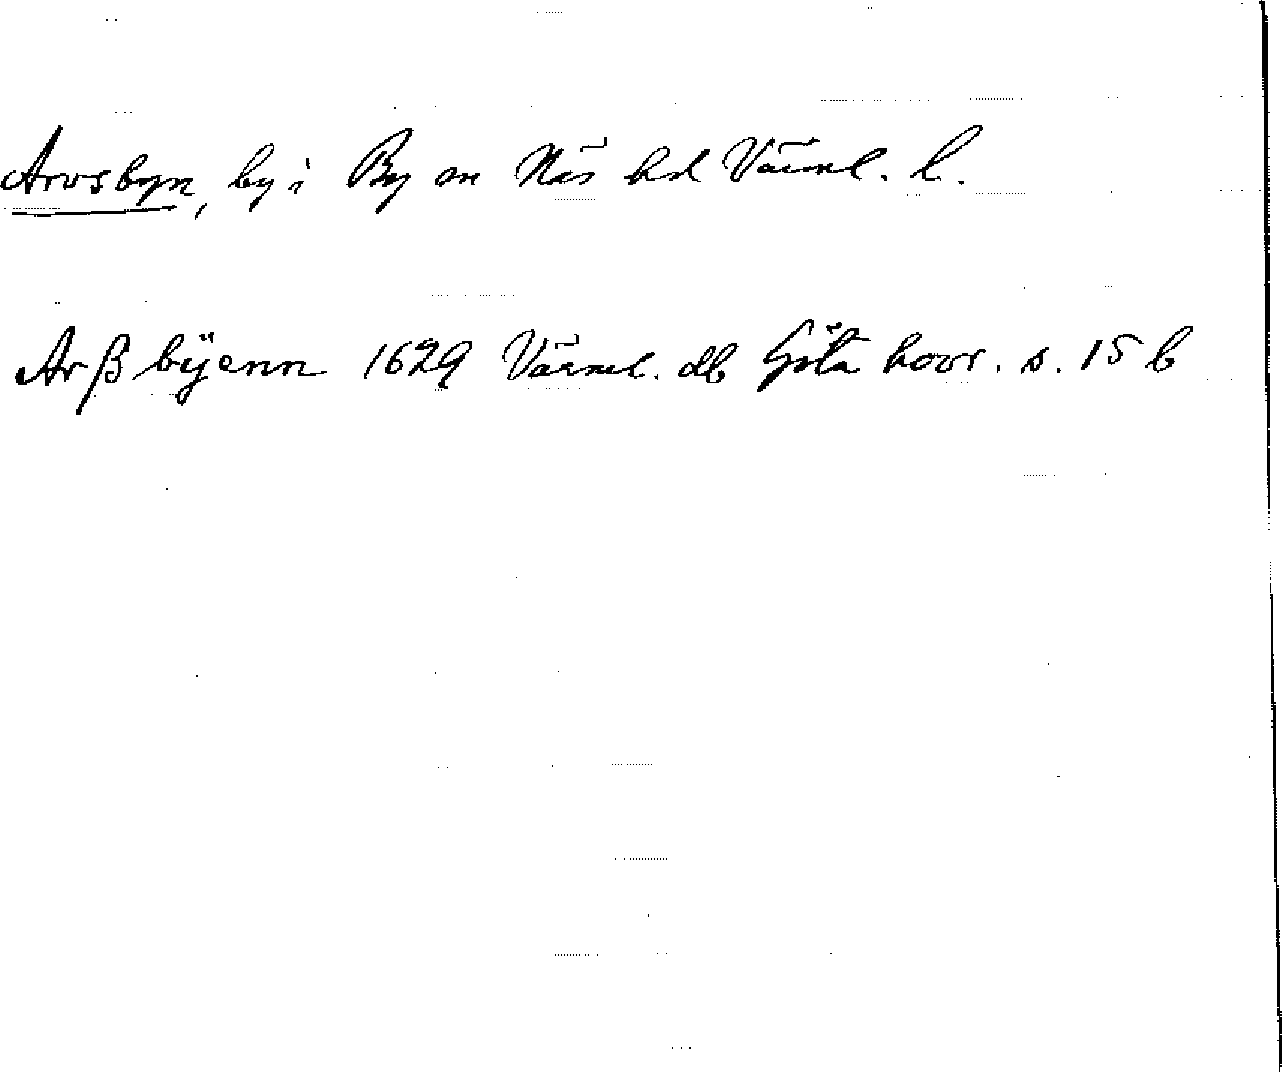 Arvsbyn, by i By sn Näs hd Värml. l.
Arßbÿenn 1629 Värml. db Göta hovr. s. 15 b